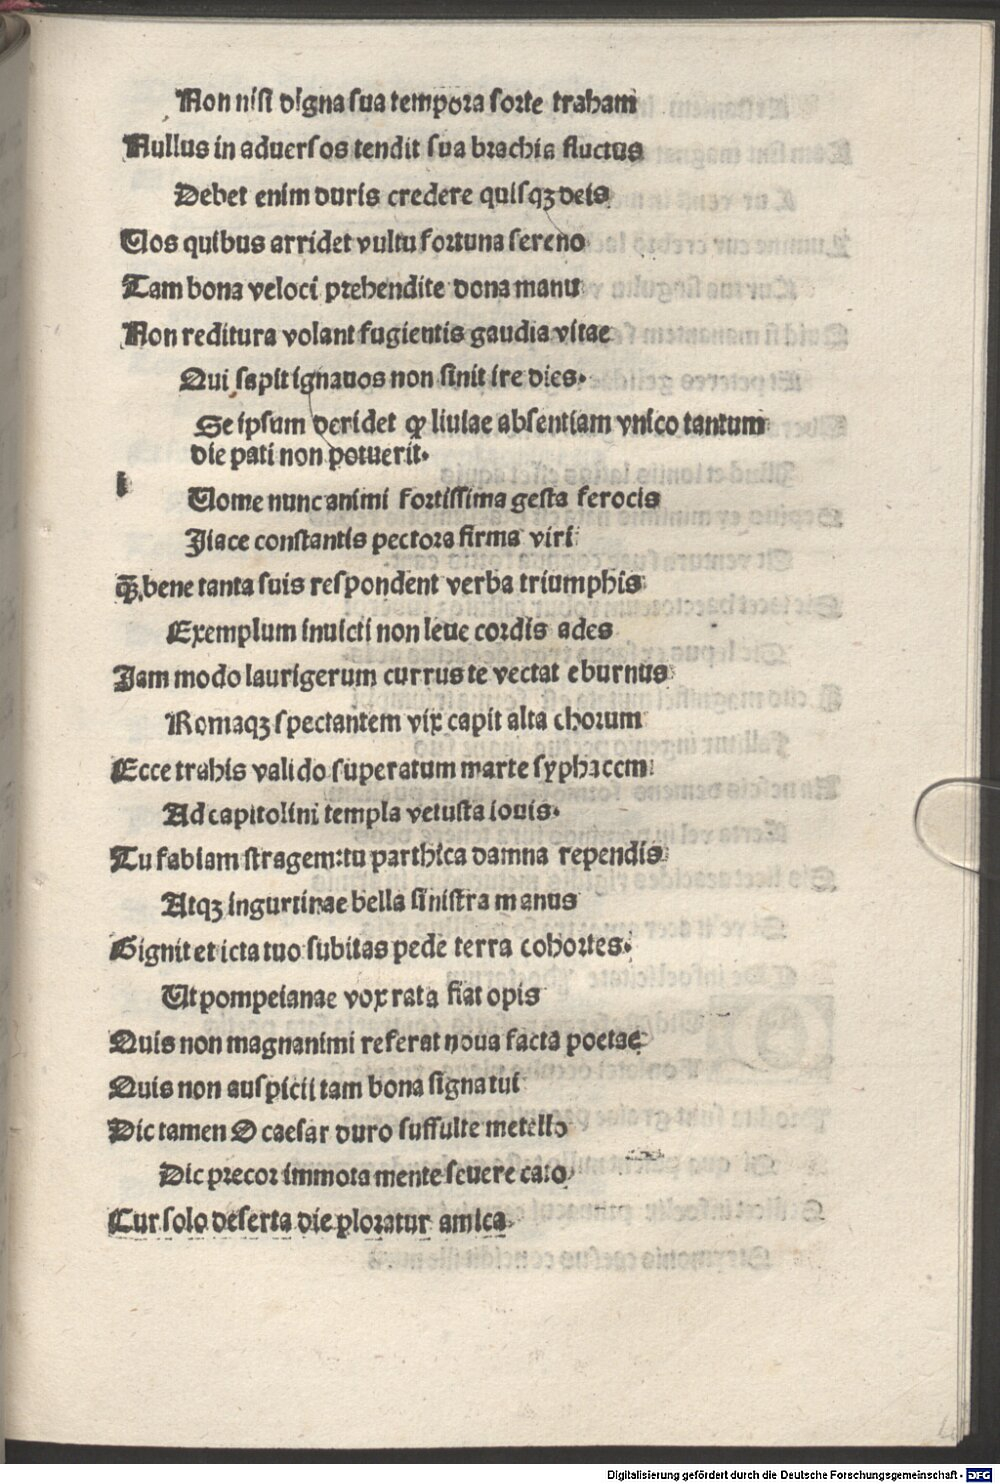 Non nisi digna sua tempora sorte traham
Nullus in aduersos tendit sua brachia fluctus
Debet enim duris credere quisqꝫ deis
Uos quibus arridet vultu fortuna sereno
Tam bona veloci prehendite dona manu
Non reditura volant fugientis gaudia vitae
Qui sapit ignauos non sinit ire dies.
Se ipsum deridet ꝙ liuiae absentiam vnico tantum
die pati non potuerit.
Uome nunc animi fortissima gesta ferocis
Jiace constantis pectora firma viri
Qꝫ bene tanta suis respondent verba triumphis
Exemplum inuicti non leue cordis ades
Jam modo laurigerum currus te vectat eburnus
Romaqꝫ spectantem vix capit alta chorum
Ecce trahis valido superatum marte syphacem
Ad capitolini templa vetusta iouis.
Tu fabiam stragem: tu parthica damna rependis
Atqꝫ ingurtinae bella sinistra manus
Gignit et icta tuo subitas pede terra cohortes.
Ut pompeianae vox rata fiat opis
Quis non magnanimi referat noua facta poetae
Quis non auspicii tam bona signa tui
Dic tamen O caesar duro suffulte metello
Dic precor immota mente seuere cato
Cur solo deserta die ploratur amica
Digitalisierung gefördert durch die Deutsche Forschungsgemeinschaft - DFG